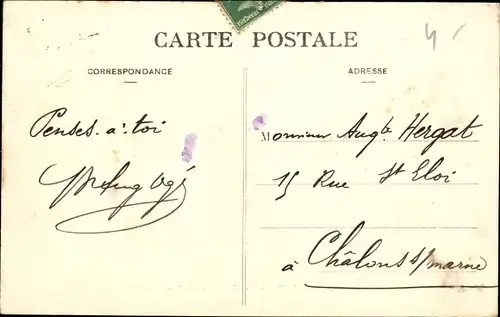 CARTE POSTALE
CORRESPONDANCE
ADRESSE
Penses à toi
Monsieur Aug.te Hergat
15 Rue St Eloi
à Châlons s/marne